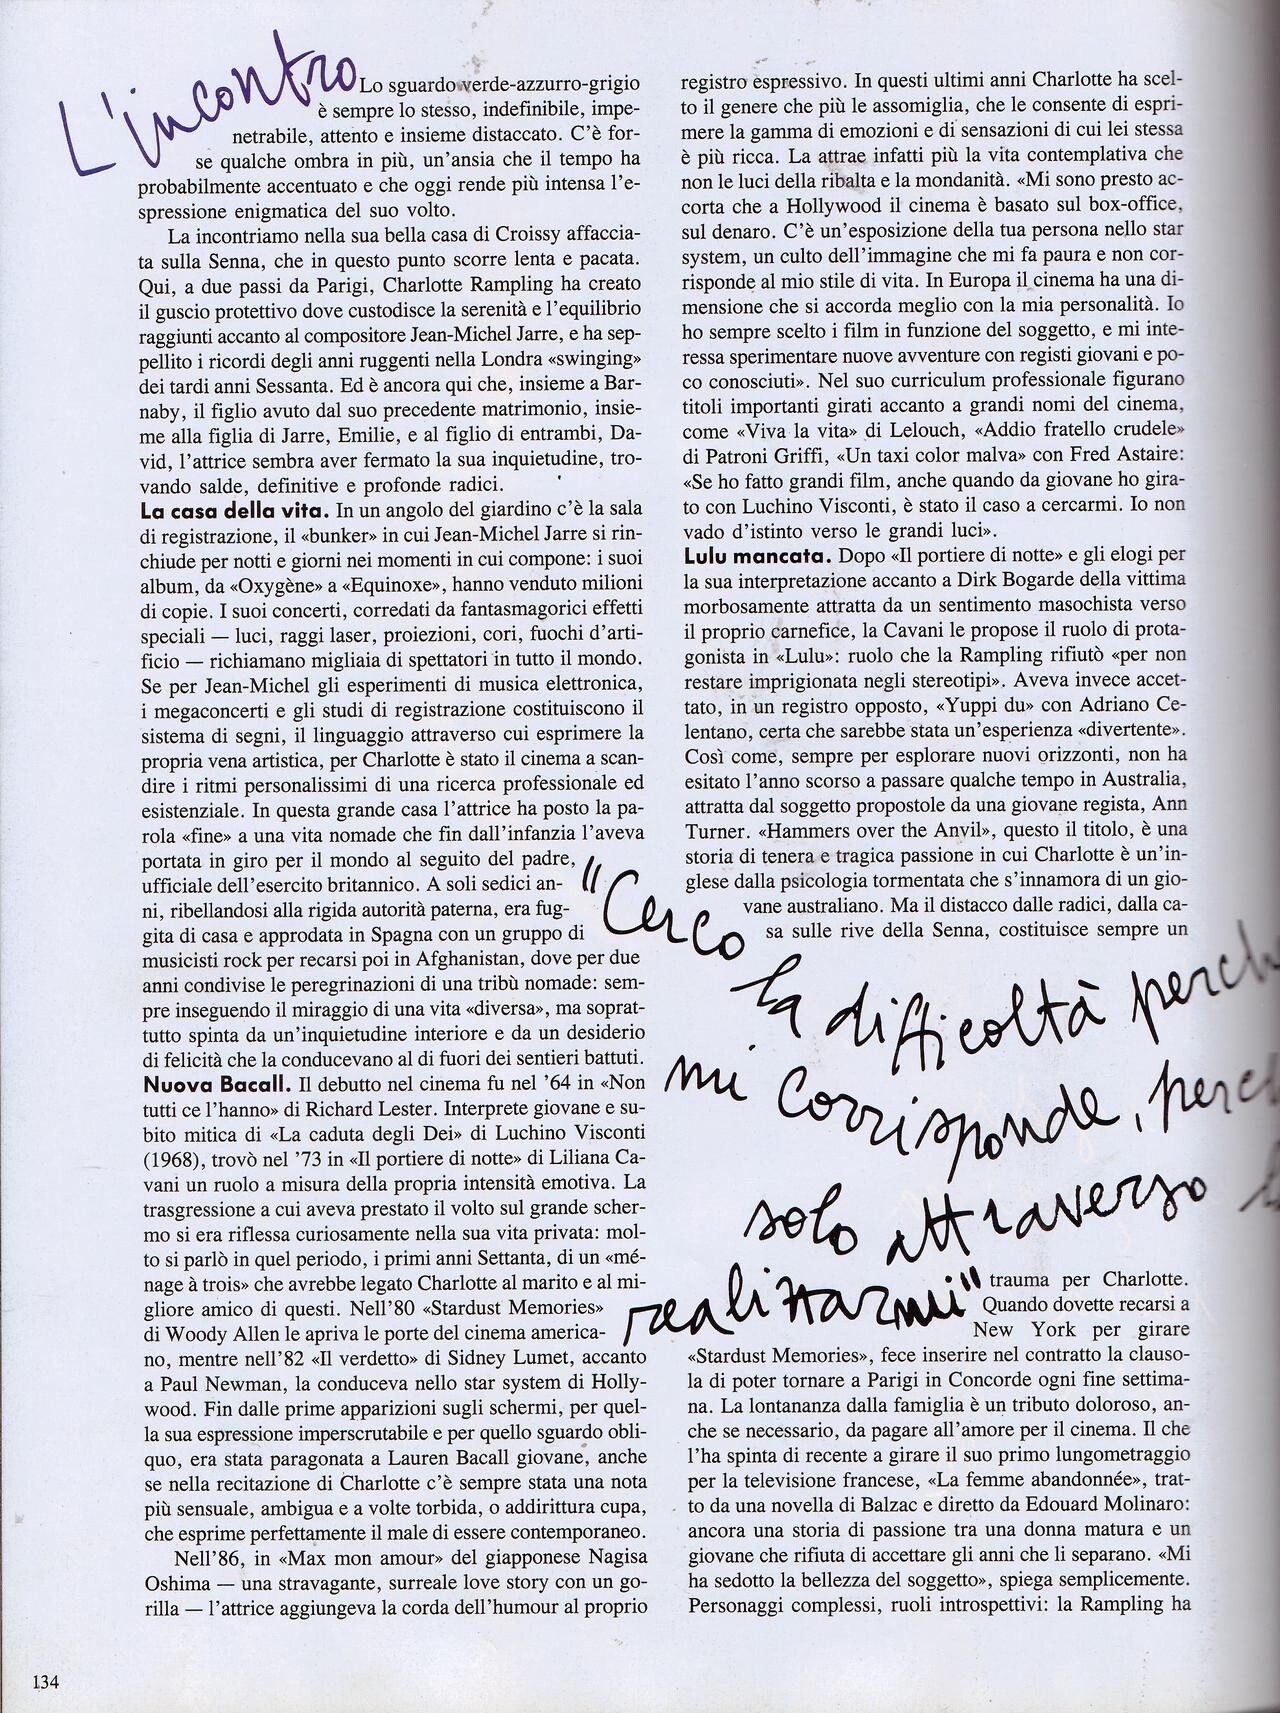 L'incontro
Lo sguardo verde-azzurro-grigio
è sempre lo stesso, indefinibile, impe-
netrabile, attento e insieme distaccato. C'è for-
se qualche ombra in più, un'ansia che il tempo ha
probabilmente accentuato e che oggi rende più intensa l'e-
spressione enigmatica del suo volto.
La incontriamo nella sua bella casa di Croissy affaccia-
ta sulla Senna, che in questo punto scorre lenta e pacata.
Qui, a due passi da Parigi, Charlotte Rampling ha creato
il guscio protettivo dove custodisce la serenità e l'equilibrio
raggiunti accanto al compositore Jean-Michel Jarre, e ha sep-
pellito i ricordi degli anni ruggenti nella Londra «swinging»
dei tardi anni Sessanta. Ed è ancora qui che, insieme a Bar-
naby, il figlio avuto dal suo precedente matrimonio, insie-
me alla figlia di Jarre, Emilie, e al figlio di entrambi, Da-
vid, l'attrice sembra aver fermato la sua inquietudine, tro-
vando salde, definitive e profonde radici.
La casa della vita. In un angolo del giardino c'è la sala
di registrazione, il «bunker» in cui Jean-Michel Jarre si rin-
chiude per notti e giorni nei momenti in cui compone: i suoi
album, da «Oxygène» a «Equinoxe», hanno venduto milioni
di copie. I suoi concerti, corredati da fantasmagorici effetti
speciali — luci, raggi laser, proiezioni, cori, fuochi d'arti-
ficio — richiamano migliaia di spettatori in tutto il mondo.
Se per Jean-Michel gli esperimenti di musica elettronica,
i megaconcerti e gli studi di registrazione costituiscono il
sistema di segni, il linguaggio attraverso cui esprimere la
propria vena artistica, per Charlotte è stato il cinema a scan-
dire i ritmi personalissimi di una ricerca professionale ed
esistenziale. In questa grande casa l'attrice ha posto la pa-
rola «fine» a una vita nomade che fin dall'infanzia l'aveva
portata in giro per il mondo al seguito del padre,
ufficiale dell'esercito britannico. A soli sedici an-
ni, ribellandosi alla rigida autorità paterna, era fug-
gita di casa e approdata in Spagna con un gruppo di
musicisti rock per recarsi poi in Afghanistan, dove per due
anni condivise le peregrinazioni di una tribù nomade: sem-
pre inseguendo il miraggio di una vita «diversa», ma soprat-
tutto spinta da un'inquietudine interiore e da un desiderio
di felicità che la conducevano al di fuori dei sentieri battuti.
Nuova Bacall. Il debutto nel cinema fu nel '64 in «Non
tutti ce l'hanno» di Richard Lester. Interprete giovane e su-
bito mitica di «La caduta degli Dei» di Luchino Visconti
(1968), trovò nel '73 in «Il portiere di notte» di Liliana Ca-
vani un ruolo a misura della propria intensità emotiva. La
trasgressione a cui aveva prestato il volto sul grande scher-
mo si era riflessa curiosamente nella sua vita privata: mol-
to si parlò in quel periodo, i primi anni Settanta, di un «mé-
nage à trois» che avrebbe legato Charlotte al marito e al mi-
gliore amico di questi. Nell'80 «Stardust Memories»
di Woody Allen le apriva le porte del cinema america-
no, mentre nell'82 «Il verdetto» di Sidney Lumet, accanto
a Paul Newman, la conduceva nello star system di Holly-
wood. Fin dalle prime apparizioni sugli schermi, per quel-
la sua espressione imperscrutabile e per quello sguardo obli-
quo, era stata paragonata a Lauren Bacall giovane, anche
se nella recitazione di Charlotte c'è sempre stata una nota
più sensuale, ambigua e a volte torbida, o addirittura cupa,
che esprime perfettamente il male di essere contemporaneo.
Nell'86, in «Max mon amour» del giapponese Nagisa
Oshima — una stravagante, surreale love story con un go-
rilla — l'attrice aggiungeva la corda dell'humour al proprio
registro espressivo. In questi ultimi anni Charlotte ha scel-
to il genere che più le assomiglia, che le consente di espri-
mere la gamma di emozioni e di sensazioni di cui lei stessa
è più ricca. La attrae infatti più la vita contemplativa che
non le luci della ribalta e la mondanità. «Mi sono presto ac-
corta che a Hollywood il cinema è basato sul box-office,
sul denaro. C'è un'esposizione della tua persona nello star
system, un culto dell'immagine che mi fa paura e non cor-
risponde al mio stile di vita. In Europa il cinema ha una di-
mensione che si accorda meglio con la mia personalità. Io
ho sempre scelto i film in funzione del soggetto, e mi inte-
ressa sperimentare nuove avventure con registi giovani e po-
co conosciuti». Nel suo curriculum professionale figurano
titoli importanti girati accanto a grandi nomi del cinema,
come «Viva la vita» di Lelouch, «Addio fratello crudele»
di Patroni Griffi, «Un taxi color malva» con Fred Astaire:
«Se ho fatto grandi film, anche quando da giovane ho gira-
to con Luchino Visconti, è stato il caso a cercarmi. Io non
vado d'istinto verso le grandi luci».
Lulu mancata. Dopo «Il portiere di notte» e gli elogi per
la sua interpretazione accanto a Dirk Bogarde della vittima
morbosamente attratta da un sentimento masochista verso
il proprio carnefice, la Cavani le propose il ruolo di prota-
gonista in «Lulu»: ruolo che la Rampling rifiutò «per non
restare imprigionata negli stereotipi». Aveva invece accet-
tato, in un registro opposto, «Yuppi du» con Adriano Ce-
lentano, certa che sarebbe stata un'esperienza «divertente».
Così come, sempre per esplorare nuovi orizzonti, non ha
esitato l'anno scorso a passare qualche tempo in Australia,
attratta dal soggetto propostole da una giovane regista, Ann
Turner. «Hammers over the Anvil», questo il titolo, è una
storia di tenera e tragica passione in cui Charlotte è un'in-
glese dalla psicologia tormentata che s'innamora di un gio-
vane australiano. Ma il distacco dalle radici, dalla ca-
sa sulle rive della Senna, costituisce sempre un
"Cerco
la difficoltà perch
mi corrisponde, perch
solo attraverso
realizzarmi"
trauma per Charlotte.
Quando dovette recarsi a
New York per girare
«Stardust Memories», fece inserire nel contratto la clauso-
la di poter tornare a Parigi in Concorde ogni fine settima-
na. La lontananza dalla famiglia è un tributo doloroso, an-
che se necessario, da pagare all'amore per il cinema. Il che
l'ha spinta di recente a girare il suo primo lungometraggio
per la televisione francese, «La femme abandonnée», trat-
to da una novella di Balzac e diretto da Edouard Molinaro:
ancora una storia di passione tra una donna matura e un
giovane che rifiuta di accettare gli anni che li separano. «Mi
ha sedotto la bellezza del soggetto», spiega semplicemente.
Personaggi complessi, ruoli introspettivi: la Rampling ha
134